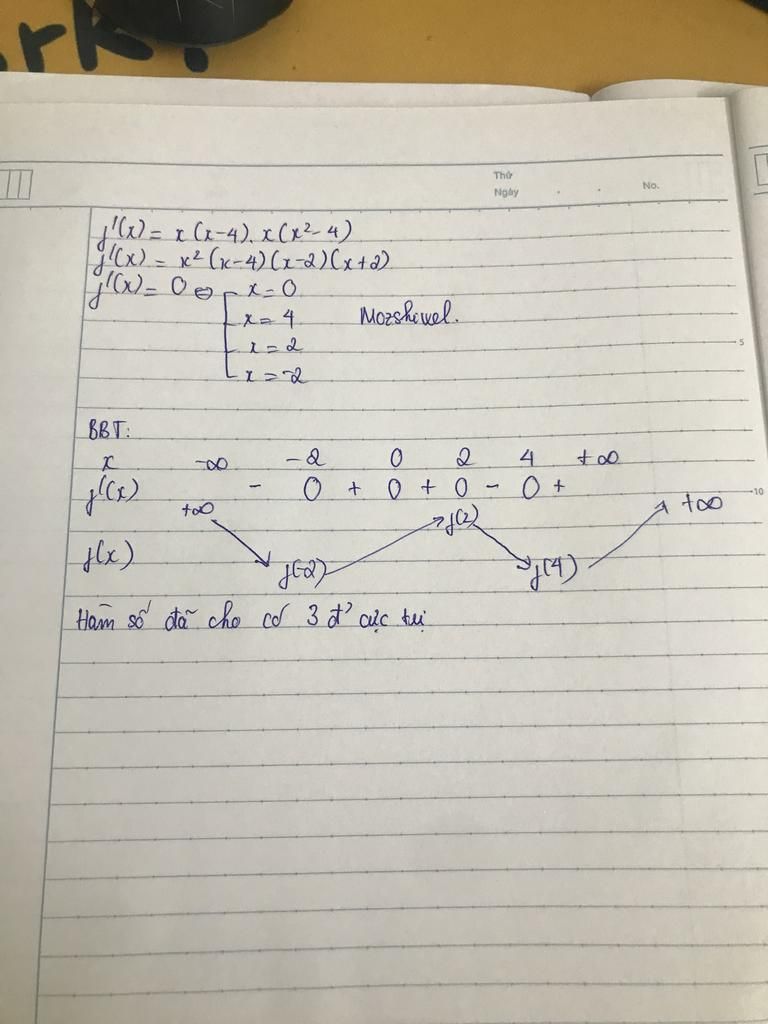 ork!
Thứ
Ngày . . No.
f'(x) = x(x-4).x(x²-4)
f'(x) = x²(x-4)(x-2)(x+2)
f'(x) = 0 ⇔ [ x=0
x=4 Mozshiwel.
x=2
x=-2
5
BBT:
x -∞ -2 0 2 4 +∞
f'(x) - 0 + 0 + 0 - 0 +
10
+∞ f(2) +∞
f(x) f(-2) f(4)
Hàm số đã cho có 3 đ' cực trị